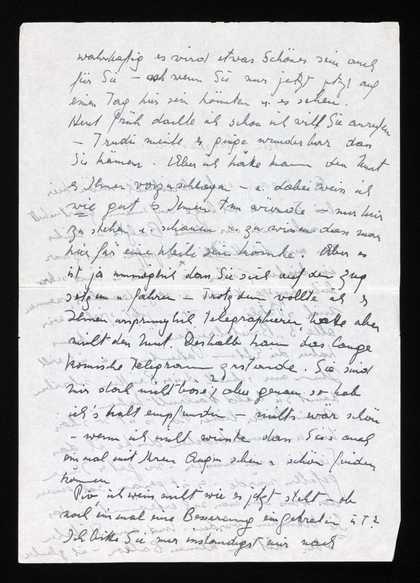 wahrhaftig es wird etwas Schönes sein auch
für Sie – ach wenn Sie nur jetzt jetzt auf
einen Tag hier sein könnten u. es sehen.
Heut früh dachte ich schon ich will Sie anrufen
– Trudi meinte es ginge wunderbar dass
Sie kämen. Aber ich habe kaum den Mut
es Ihnen vorzuschlagen – u. dabei weiss ich
wie gut es Ihnen tun würde – nur hier
zu stehen u. schauen u. zu wissen dass man
hier für eine Weile sein könnte. Aber es
ist ja unmöglich dass Sie sich auf den Zug
setzen u. fahren – Trotzdem wollte ich es
Ihnen ursprünglich telegraphieren, hatte aber
nicht den Mut. Deshalb kam das lange
komische Telegramm zustande. Sie sind
mir doch nicht böse? aber genau so hab
ich's halt empfunden – nichts wär schön
– wenn ich nicht wüsste dass Sie's auch
einmal mit Ihren Augen sehen u. schön finden
können.
ich weiss nicht wie es jetzt steht – ob
noch einmal eine Besserung eingetreten ist?
Ich bitte Sie nur inständigst mir nach